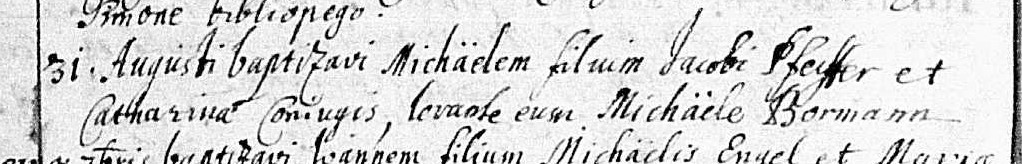 Simone bibliopego.
31. Augusti baptizavi Michäelem filium Jacobi Pfeiffer et
Catharinæ Coniugis, levante eum Michäele Bormann
baptizavi Joannem filium Michäelis Engel et Maria